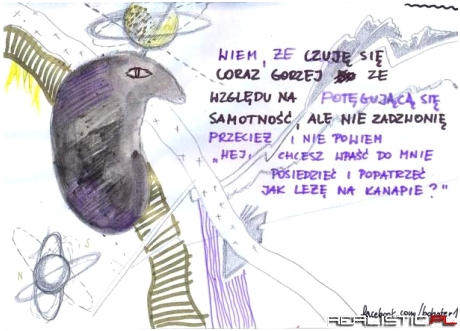 WIEM, ŻE CZUJĘ SIĘ
CORAZ GORZEJ ZE
WZGLĘDU NA POTĘGUJĄCĄ SIĘ
SAMOTNOŚĆ, ALE NIE ZADZWONIĘ
PRZECIEŻ I NIE POWIEM
„HEJ, CHCESZ WPAŚĆ DO MNIE
POSIEDZIEĆ I POPATRZEĆ
JAK LEŻĘ NA KANAPIE?"
N
S
REALISTIC PL